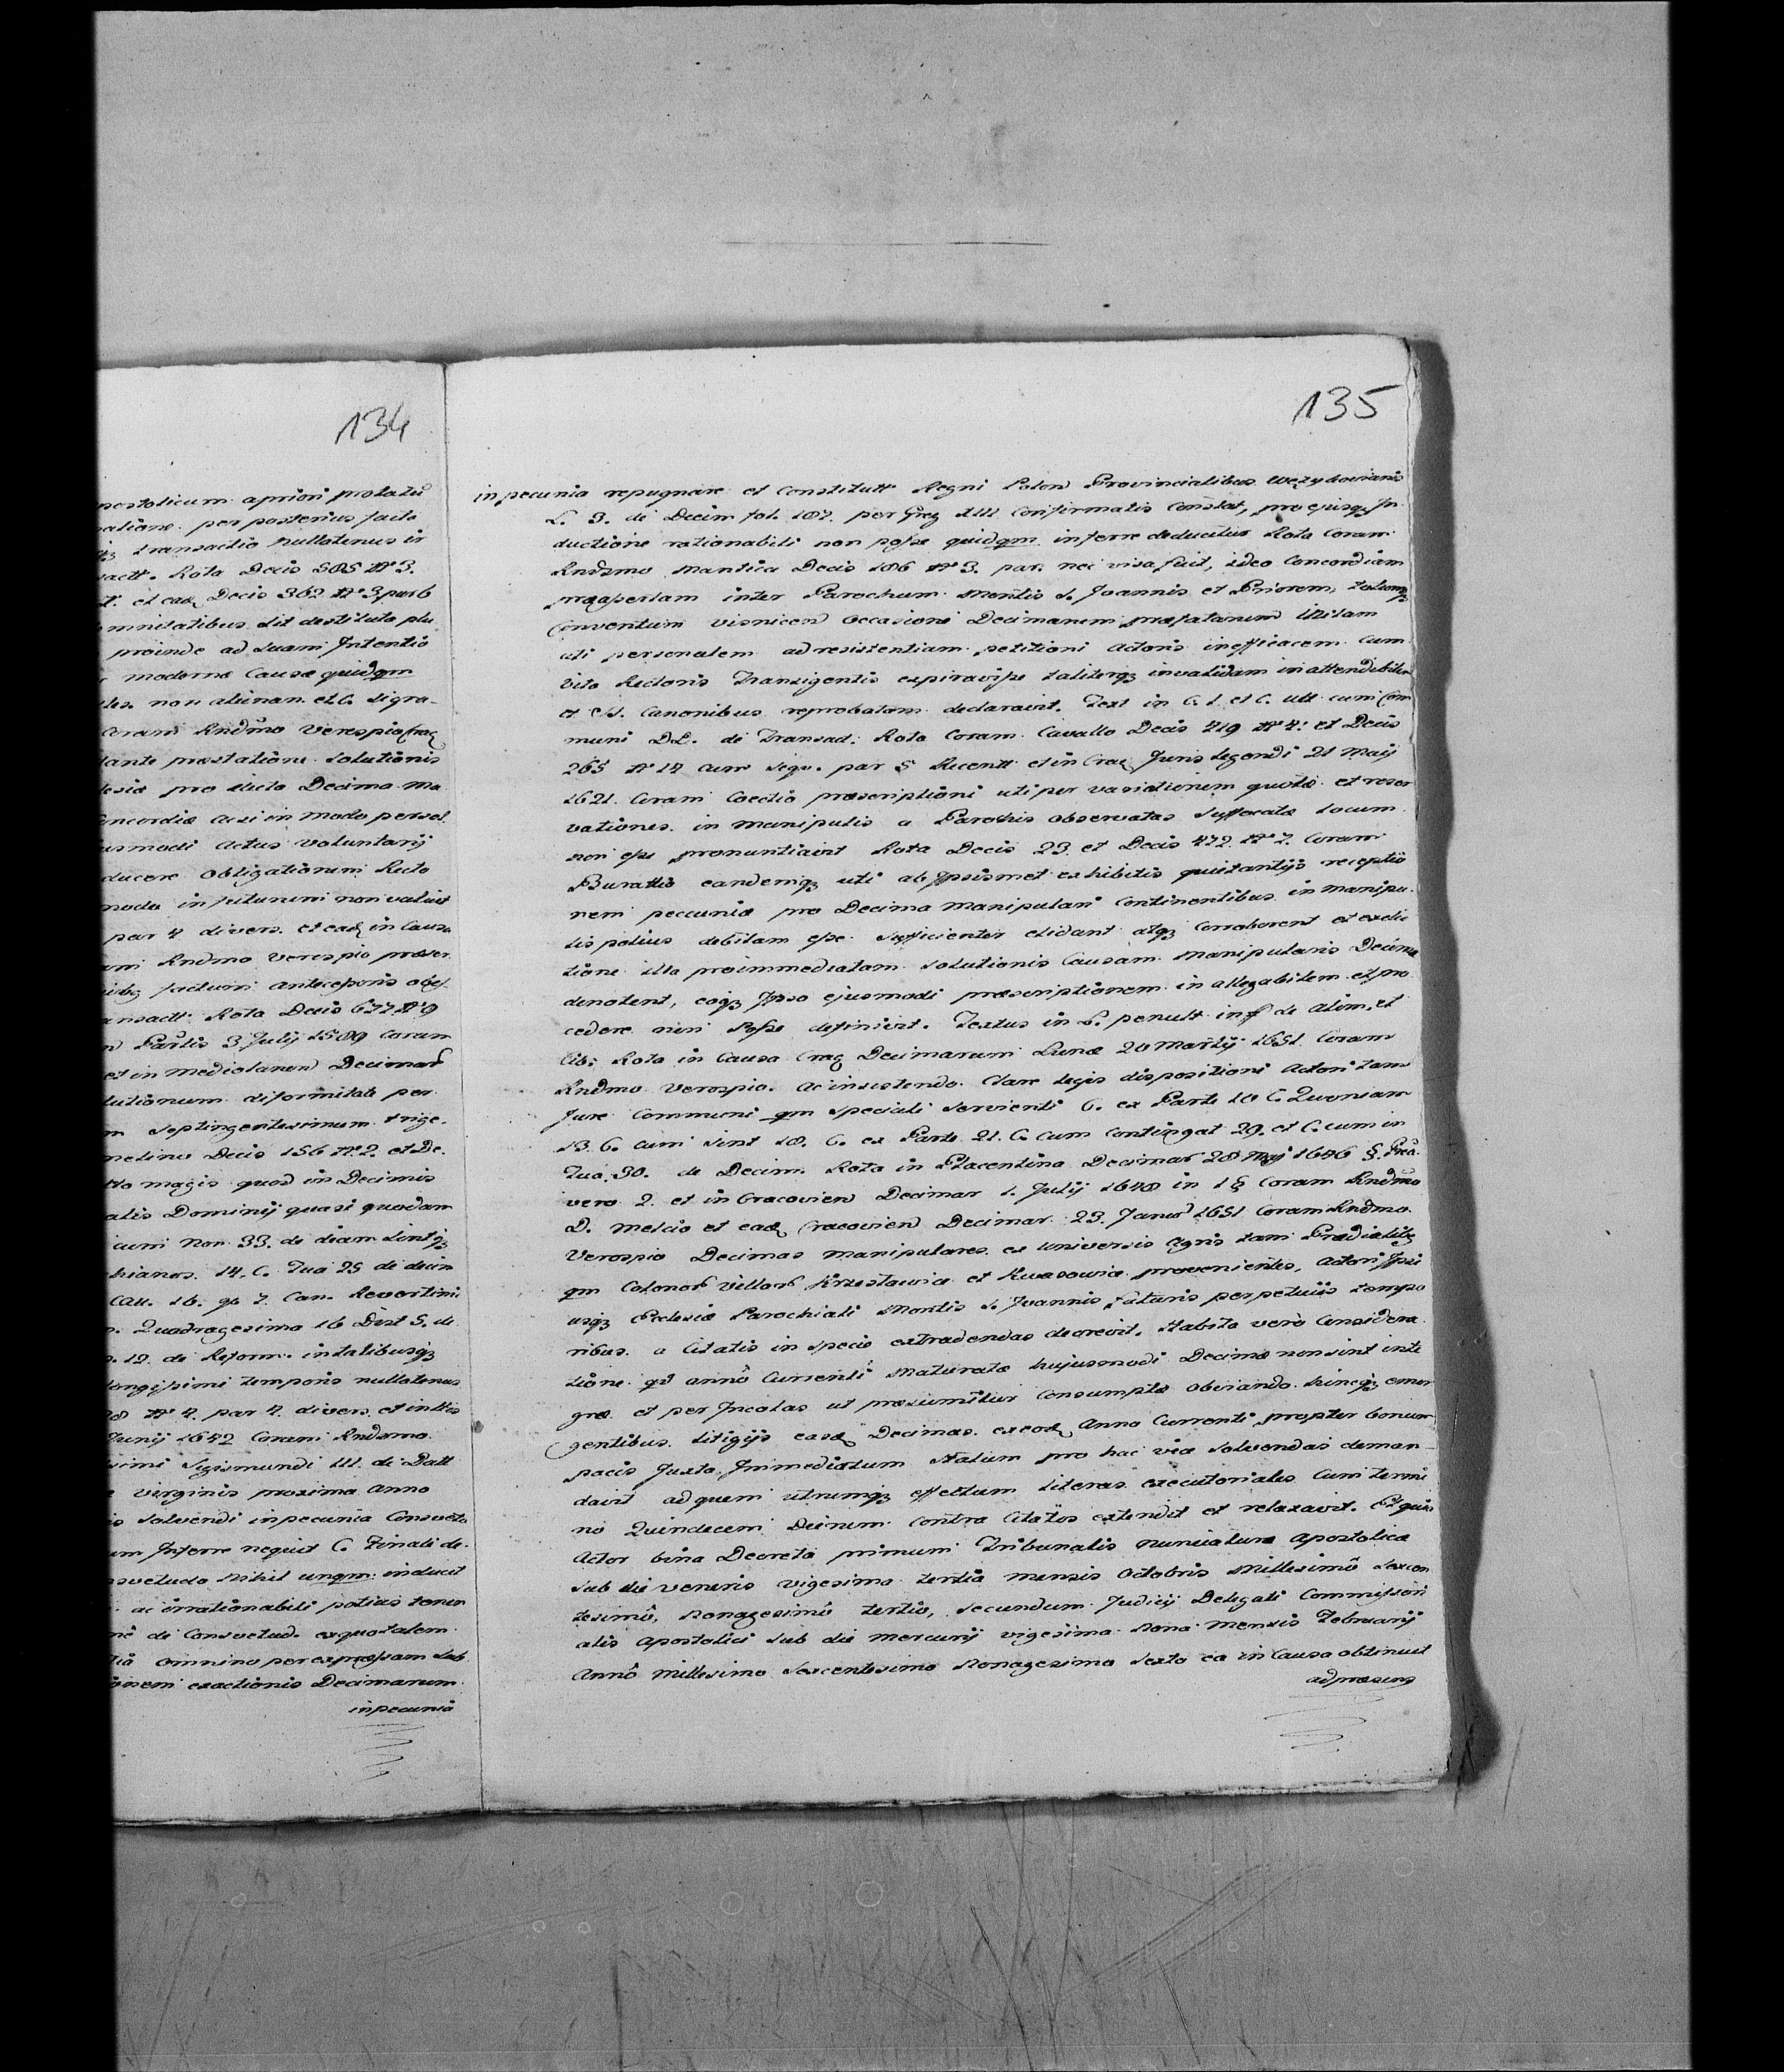 134
postolicum a priori prolatū
per posterius facto
transactio nullatenus in
Rota Decis 585 N° 3.
et ead Decis 362 N° 3 par 6
mnitatibus sit destituta plu
proinde ad suam Intentio
moderna Causa quidqm
non alienan. et C. Signa-
Coram Rndmo Verospio Crac
tante praestatione solutionis
lesia pro dicta Decima Ma
oncordia ac si in modo persol
usmodi actus voluntarij
ducere obligationem Recto
modo in futurum non valuit
par 4 divers. et ead in Causa
Rndmo Verospio praeser
factum antecessoris obes
Rota Decis 677 N° 9
Partis 3 Julij 1589 Coram
et in Mediolanen Decimar
lutionum diformitate per
m septingentesimum trige.
Decis 156 N° 2. et De.
magis quod in Decimis
alis Dominij quasi quodam
cum Non 33. de
14. C. Tua 25 de decim
16. q. 7. Can. Revertimi
Quadragesima 16 Dist 5. de
12. de Reform. in talibusq3
longissimi temporis nullatenus
N° 4. par 4. divers. et in
Junij 1642 Coram Rndsmo.
simi Sigismundi III. de Datt
virginis proxima anno
solvendi in pecunia Consueto
um Inferre nequit C. Finali de.
suetudo Nihil unqm inducit
ac irrationabili potius
de Consvetud. ex quo talem
omnino per expressam sub
onem exactionis Decimarum
in pecunia
135
in pecunia repugnare et Constitutt Regni Polon Provincialibus Wezykovianis
L. 3. de Decim fol. 187. per Greg XIII Confirmatis Constat, pro ejusq3 In
ductione rationabili non posse quidqm inferre deducitur Rota Coram
Rndsmo Mantica Decis 186 N° 3. par. nec visa fuit, ideo Concordiam
praeassertam inter Parochum Montis S. Joannis et Priorem, totumq3
Conventum Visnicen occasione Decimarum praefatarum initam
uti personalem ad resistentiam petitioni Actoris inefficacem cum
Vita Rectoris Transigentis expiravisse taliterq3 invalidam inattendibilem
et Canonibus reprobatam declaravit. Text in C. 1. et C. ult cum Com
muni DD. de Transact: Rota Coram Cavallo Decis 419 N° 4: et Decis
265 N° 14 cum seqv. par 5 Recentt et in Crac Juris legendi 21 Maij
1621. Coram Coccio praescriptioni uti per variationem quotae et reser
vationes in manipulis a Parochis observatas suffocatae locum
non esse pronuntiavit Rota Decis 23. et Decis 472. N° 7. Coram
Burattio eandemq3 uti ab Ipsismet exhibitis quietantijs receptio
nem peccuniae pro Decima Manipulari Continentibus in manipu
lis potius debitam esse sufficienter elidant atq3 corroborent et exclu
tione illa pro immediatam solutionis Causam manipularis Decimae
denotent, eoq3 Ipso ejusmodi praescriptionem inallegabilem et pro
cedere non posse definivit. Textus in L. penult in ff de alim. et
Cib: Rota in Causa Crac Decimarum Lunae 20 Martij 1651. Coram
Rndmo Verospio. Ac insistendo. Clare legis dispositioni Actori tam
Jure Communi qm speciali servienti C. ex Parte 10 C. Quoniam
13. C. cum sint 18. C. ex Parte 21. C. cum contingat 29. et C. cum in
Tua. 30. de Decim. Rota in Placentina Decimar 28 Maj 1646 §.
vero 2. et in Cracovien Decimar 1. Julij 1648 in 1 § Coram Rndmo
D. Melcio et ead Cracovien Decimar 23. Januar 1651 Coram Rndmo.
Verospio Decimas manipulares ex universis agris tam Praedialib3
qm Colonor Villar Krzesławice et Kwasowice provenientes, Actori Ipsi
usq3 Ecclesiae Parochiali Montis S. Joannis futuris perpetuis tempo
ribus a Citatis in specie extradendas decrevit. Habita vero Considera
tione qd anno Currenti maturatae hujusmodi Decimae non sint inte
grae et per Incolas ut praesumitur consumptae obviando hincq3 emer
gentibus litigijs easd Decimas ex eod Anno Currenti propter bonum
pacis Juxta Immediatum Statum pro hac vice solvendas deman-
davit ad quem utrumq3 effectum literas executoriales cum termi
no Quindecem Dierum contra Citatos extendit et relaxavit. Et quia
Actor bina Decreta primum Tribunalis Nunciaturae Apostolicae
sub die veneris vigesima tertia mensis Octobris Millesimo Sexcen
tesimo, Nonagesimo tertio, secundum Judicij Delegati Commissori
alis Apostolici sub die Mercurij vigesima Nona Mensis Februarij
Anno Millesimo Sexcentesimo Nonagesimo Sexto ea in Causa obtinuit
ad praesens